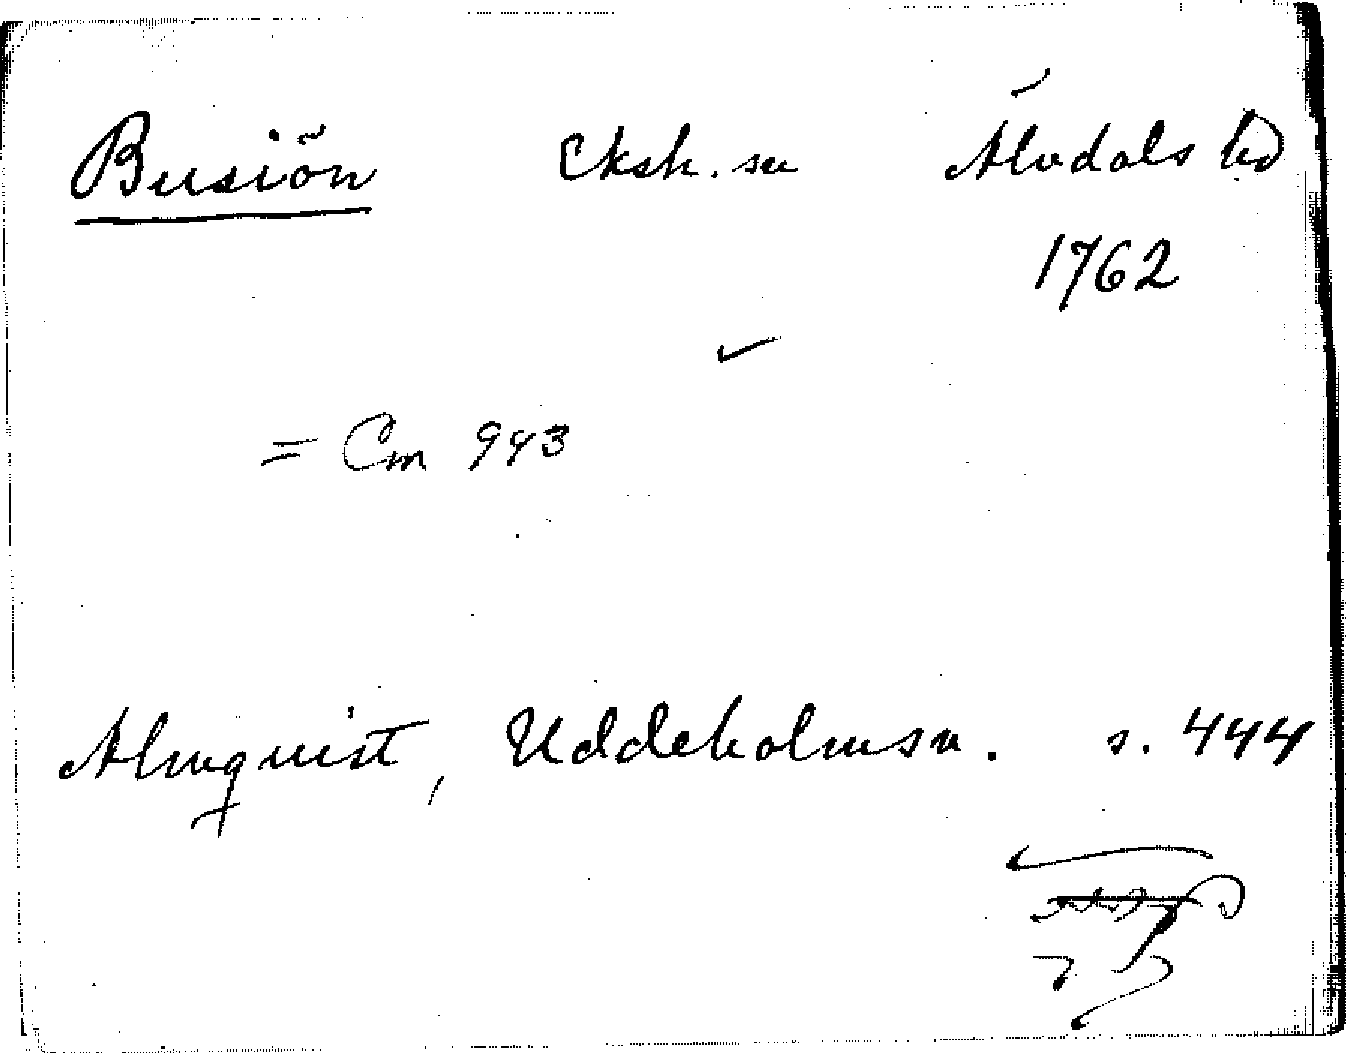 Busiön Eksh. sn Älvdals hd
1762
= Cm 943
Almquist, Uddeholmsv. s. 444